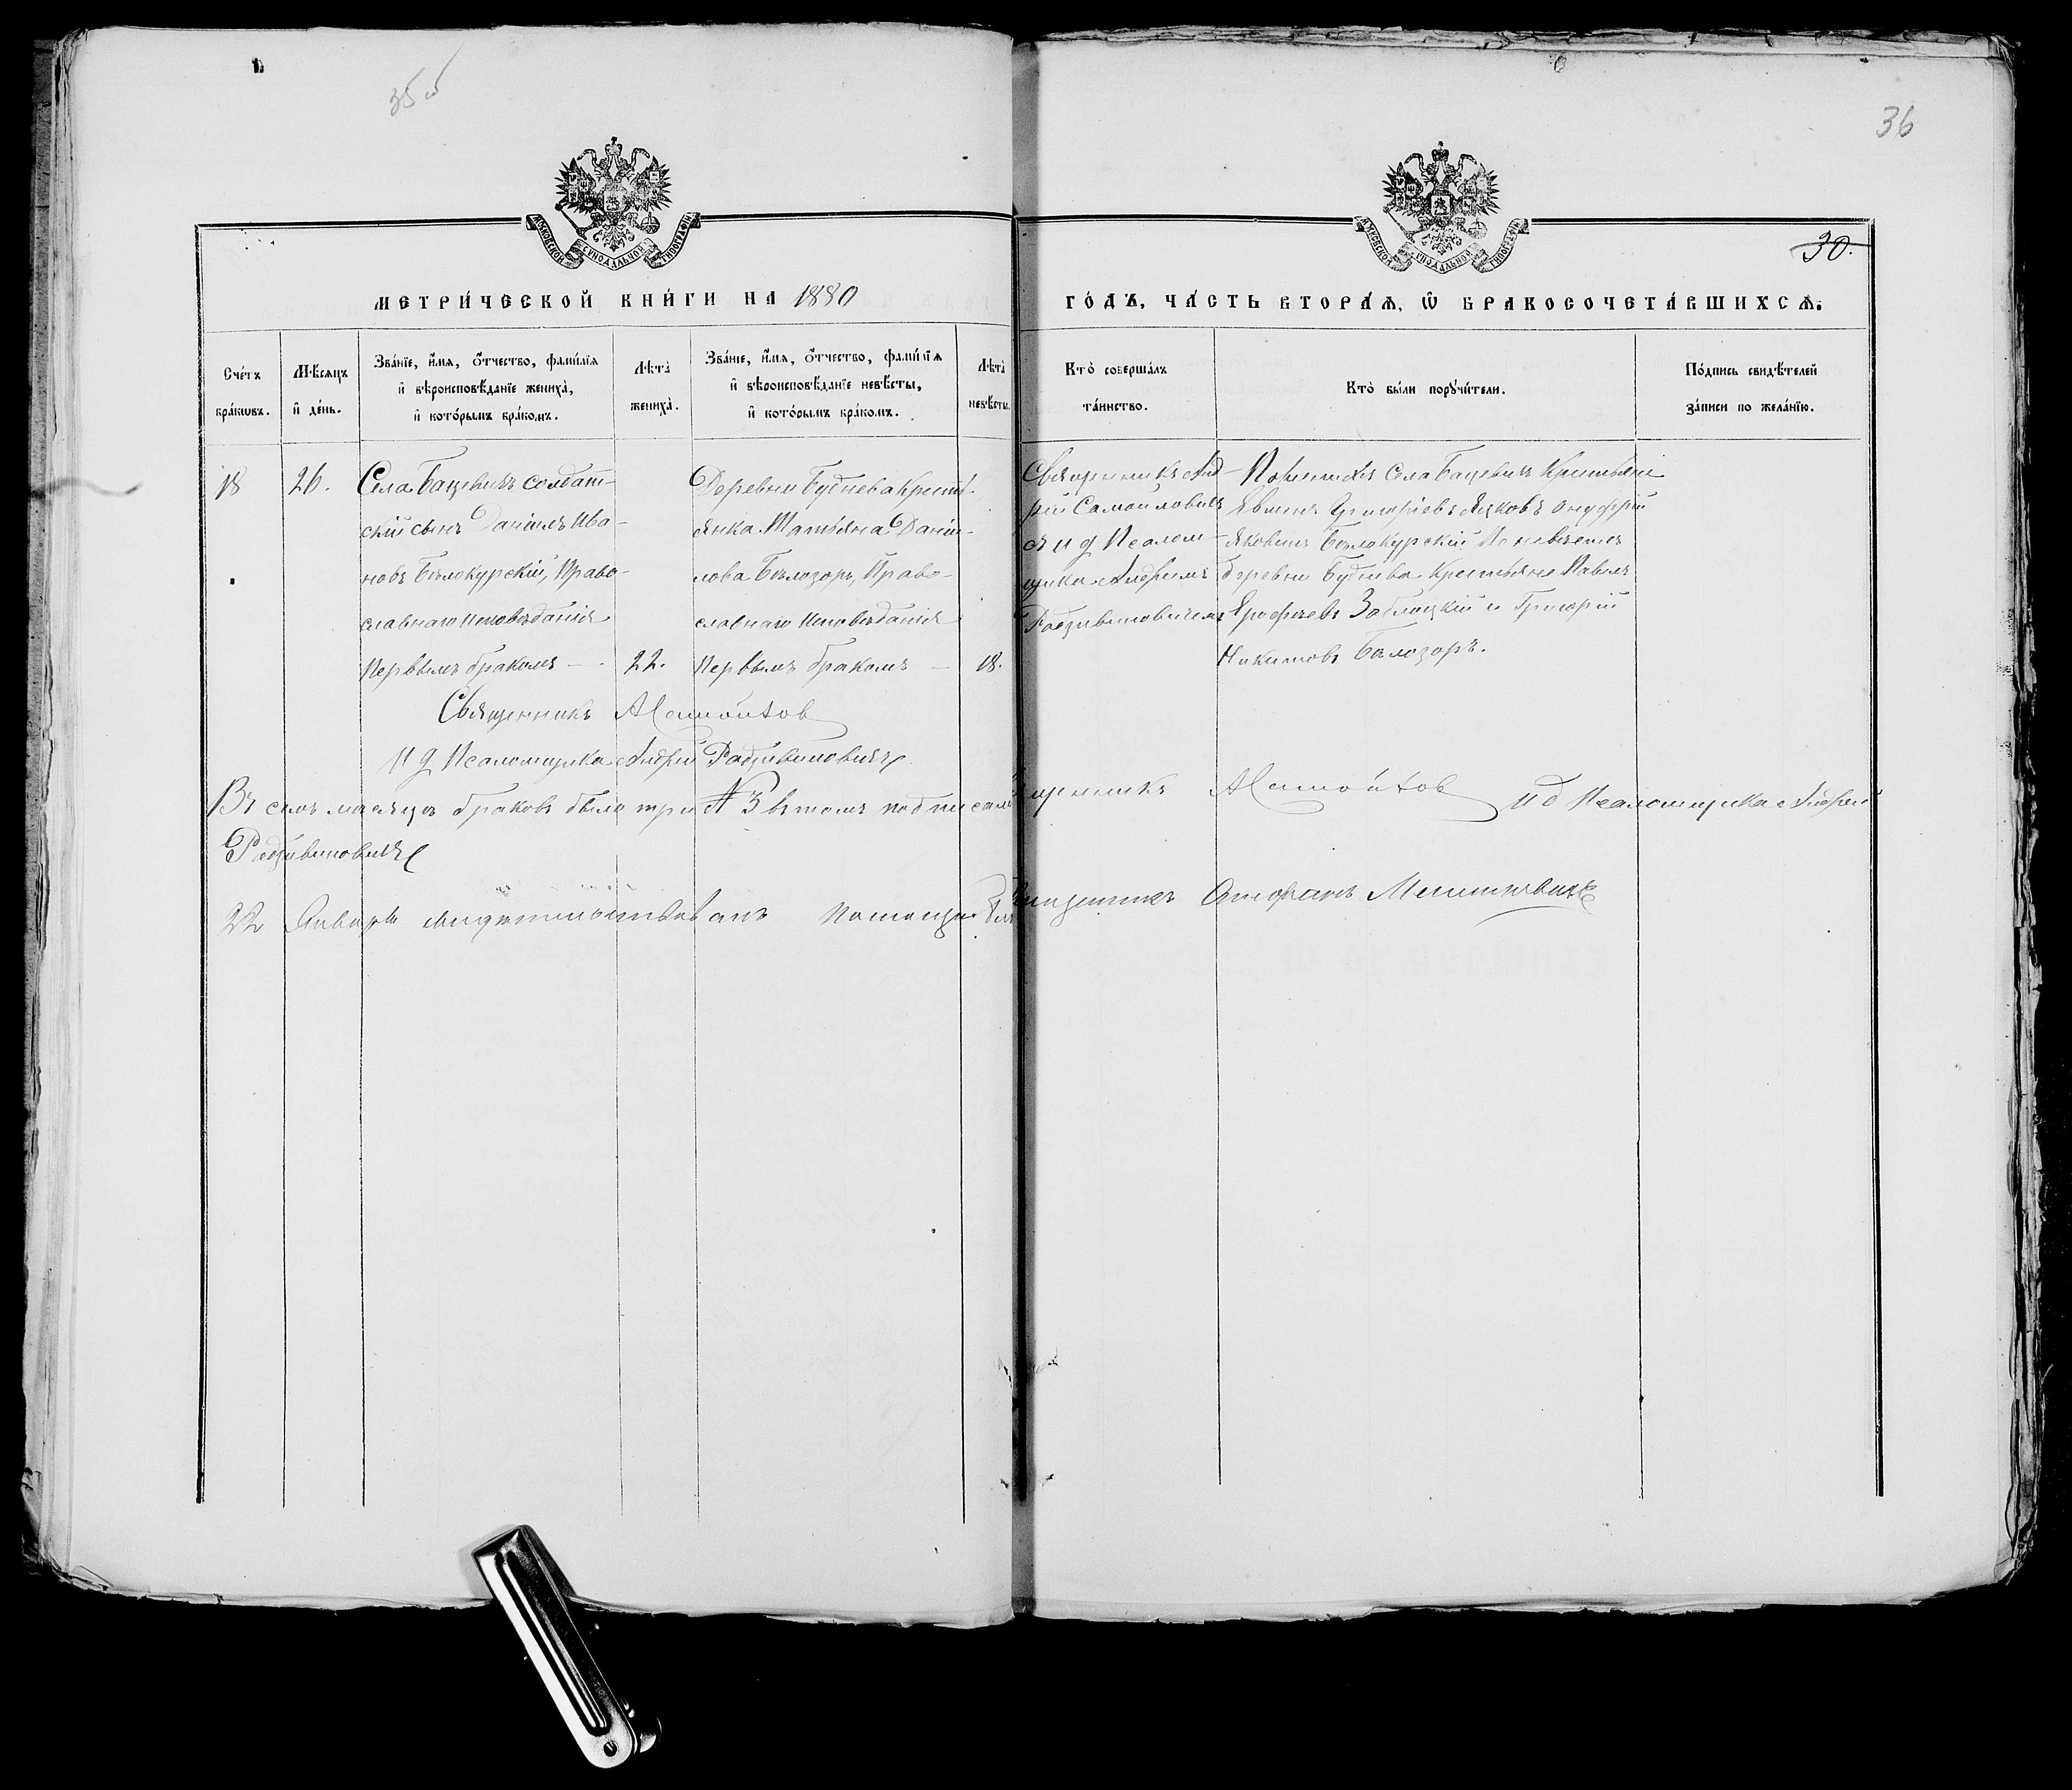 35 об
36
МОСКОВСКОЙ СѴНОДАЛЬНОЙ ТИПОГРАФІИ
МОСКОВСКОЙ СѴНОДАЛЬНОЙ ТИПОГРАФІИ
30.
МЕТРИ́ЧЕСКОЙ КНИ́ГИ НА 1880
ГО́ДЪ, ЧА́СТЬ ВТОРА́Ѧ, Ѡ҆ БРАКОСОЧЕТА́ВШИХСѦ.
Сче́тъ
бра́кωвъ.
Мѣ́сяцъ
и҆ де́нь.
Зва́нїе, и҆́мя, о҆́тчество, фами́лїя
и҆ вѣроисповѣ́данїе жениха̀,
и҆ кото́рымъ бра́комъ.
Лѣ́та
жениха̀.
Зва́нїе, и҆́мя, о҆́тчество, фами́лїя
и҆ вѣроисповѣ́данїе невѣ́сты,
и҆ кото́рымъ бра́комъ.
Лѣ́та
невѣ́сты.
Кто̀ соверша́лъ
та́инство.
Кто̀ бы́ли порꙋчи́тели.
По́дпись свидѣ́телей
за́писи по жела́нїю.
18
26.
Села Бацевичъ солдат-
скій сынъ Даніилъ Ива-
новъ Бѣлокурскій, Право-
славнаго исповѣданія
Первымъ бракомъ —
22.
Деревни Буднева Крестъ-
янка Татьяна Даніи-
лова Бѣлозоръ, Право-
славнаго исповѣданія
Первымъ бракомъ —
18.
Священникъ Анд-
рій Самойловичъ
съ и д Псалом-
щика Андреемъ
Радзивиновичемъ
По женихѣ Села Бацевичъ Крестьяне
Григоріевъ Яцковъ Онуфрій
Яковинъ Бѣлокурскій По невѣстѣ
деревни Буднева Крестьяне Павелъ
Ярофѣевъ Заблоцкій и Григорій
Никитовъ Бѣлозоръ.
Священникъ
И д Псаломщика Андрей Радзивиновичъ
Въ семъ мѣсяцѣ браковъ было три № 3 въ томъ подписали
Священникъ
И д Псаломщика Андрей
Радзивиновичъ
22 Января свидѣтельствовалъ
Священникъ